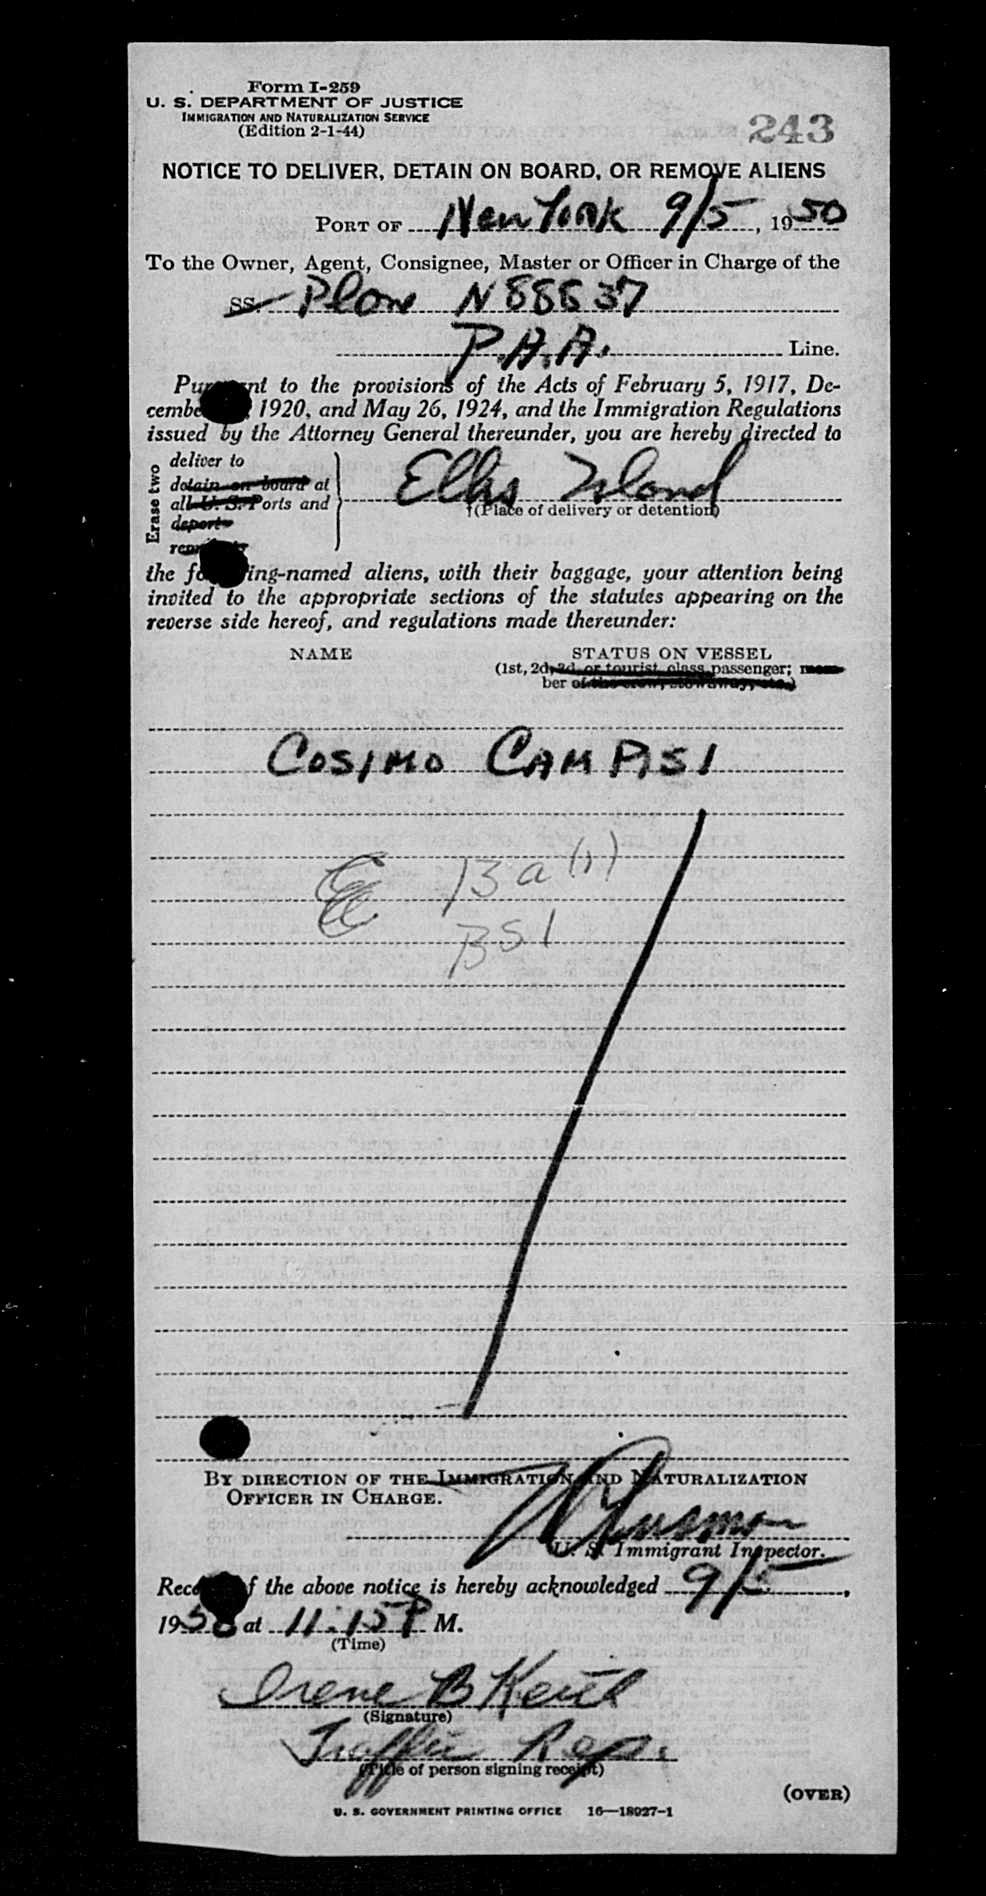 Form I-259
U. S. DEPARTMENT OF JUSTICE
IMMIGRATION AND NATURALIZATION SERVICE
(Edition 2-1-44)
243
NOTICE TO DELIVER, DETAIN ON BOARD, OR REMOVE ALIENS
PORT OF New York 9/5, 1950
To the Owner, Agent, Consignee, Master or Officer in Charge of the
SS Plane N88837
P.A.A. Line.
Pursuant to the provisions of the Acts of February 5, 1917, De-
cember 1920, and May 26, 1924, and the Immigration Regulations
issued by the Attorney General thereunder, you are hereby directed to
Erase two
deliver to
detain on board at
all U. S. Ports and
deport
Ellis Island
†(Place of delivery or detention)
the following-named aliens, with their baggage, your attention being
invited to the appropriate sections of the statutes appearing on the
reverse side hereof, and regulations made thereunder:
NAME STATUS ON VESSEL
(1st, 2d, 3d, or tourist class passenger; mem-
ber of the crew, stowaway, etc.)
COSIMO CAMPISI
13a(1)
BSI
BY DIRECTION OF THE IMMIGRATION AND NATURALIZATION
OFFICER IN CHARGE.
U. S. Immigrant Inspector.
Receipt of the above notice is hereby acknowledged 9/5,
1950 at 11:15 P M.
(Time)
Irene B Keith
(Signature)
Traffic Rep.
(Title of person signing receipt)
(OVER)
U. S. GOVERNMENT PRINTING OFFICE 16—18027-1